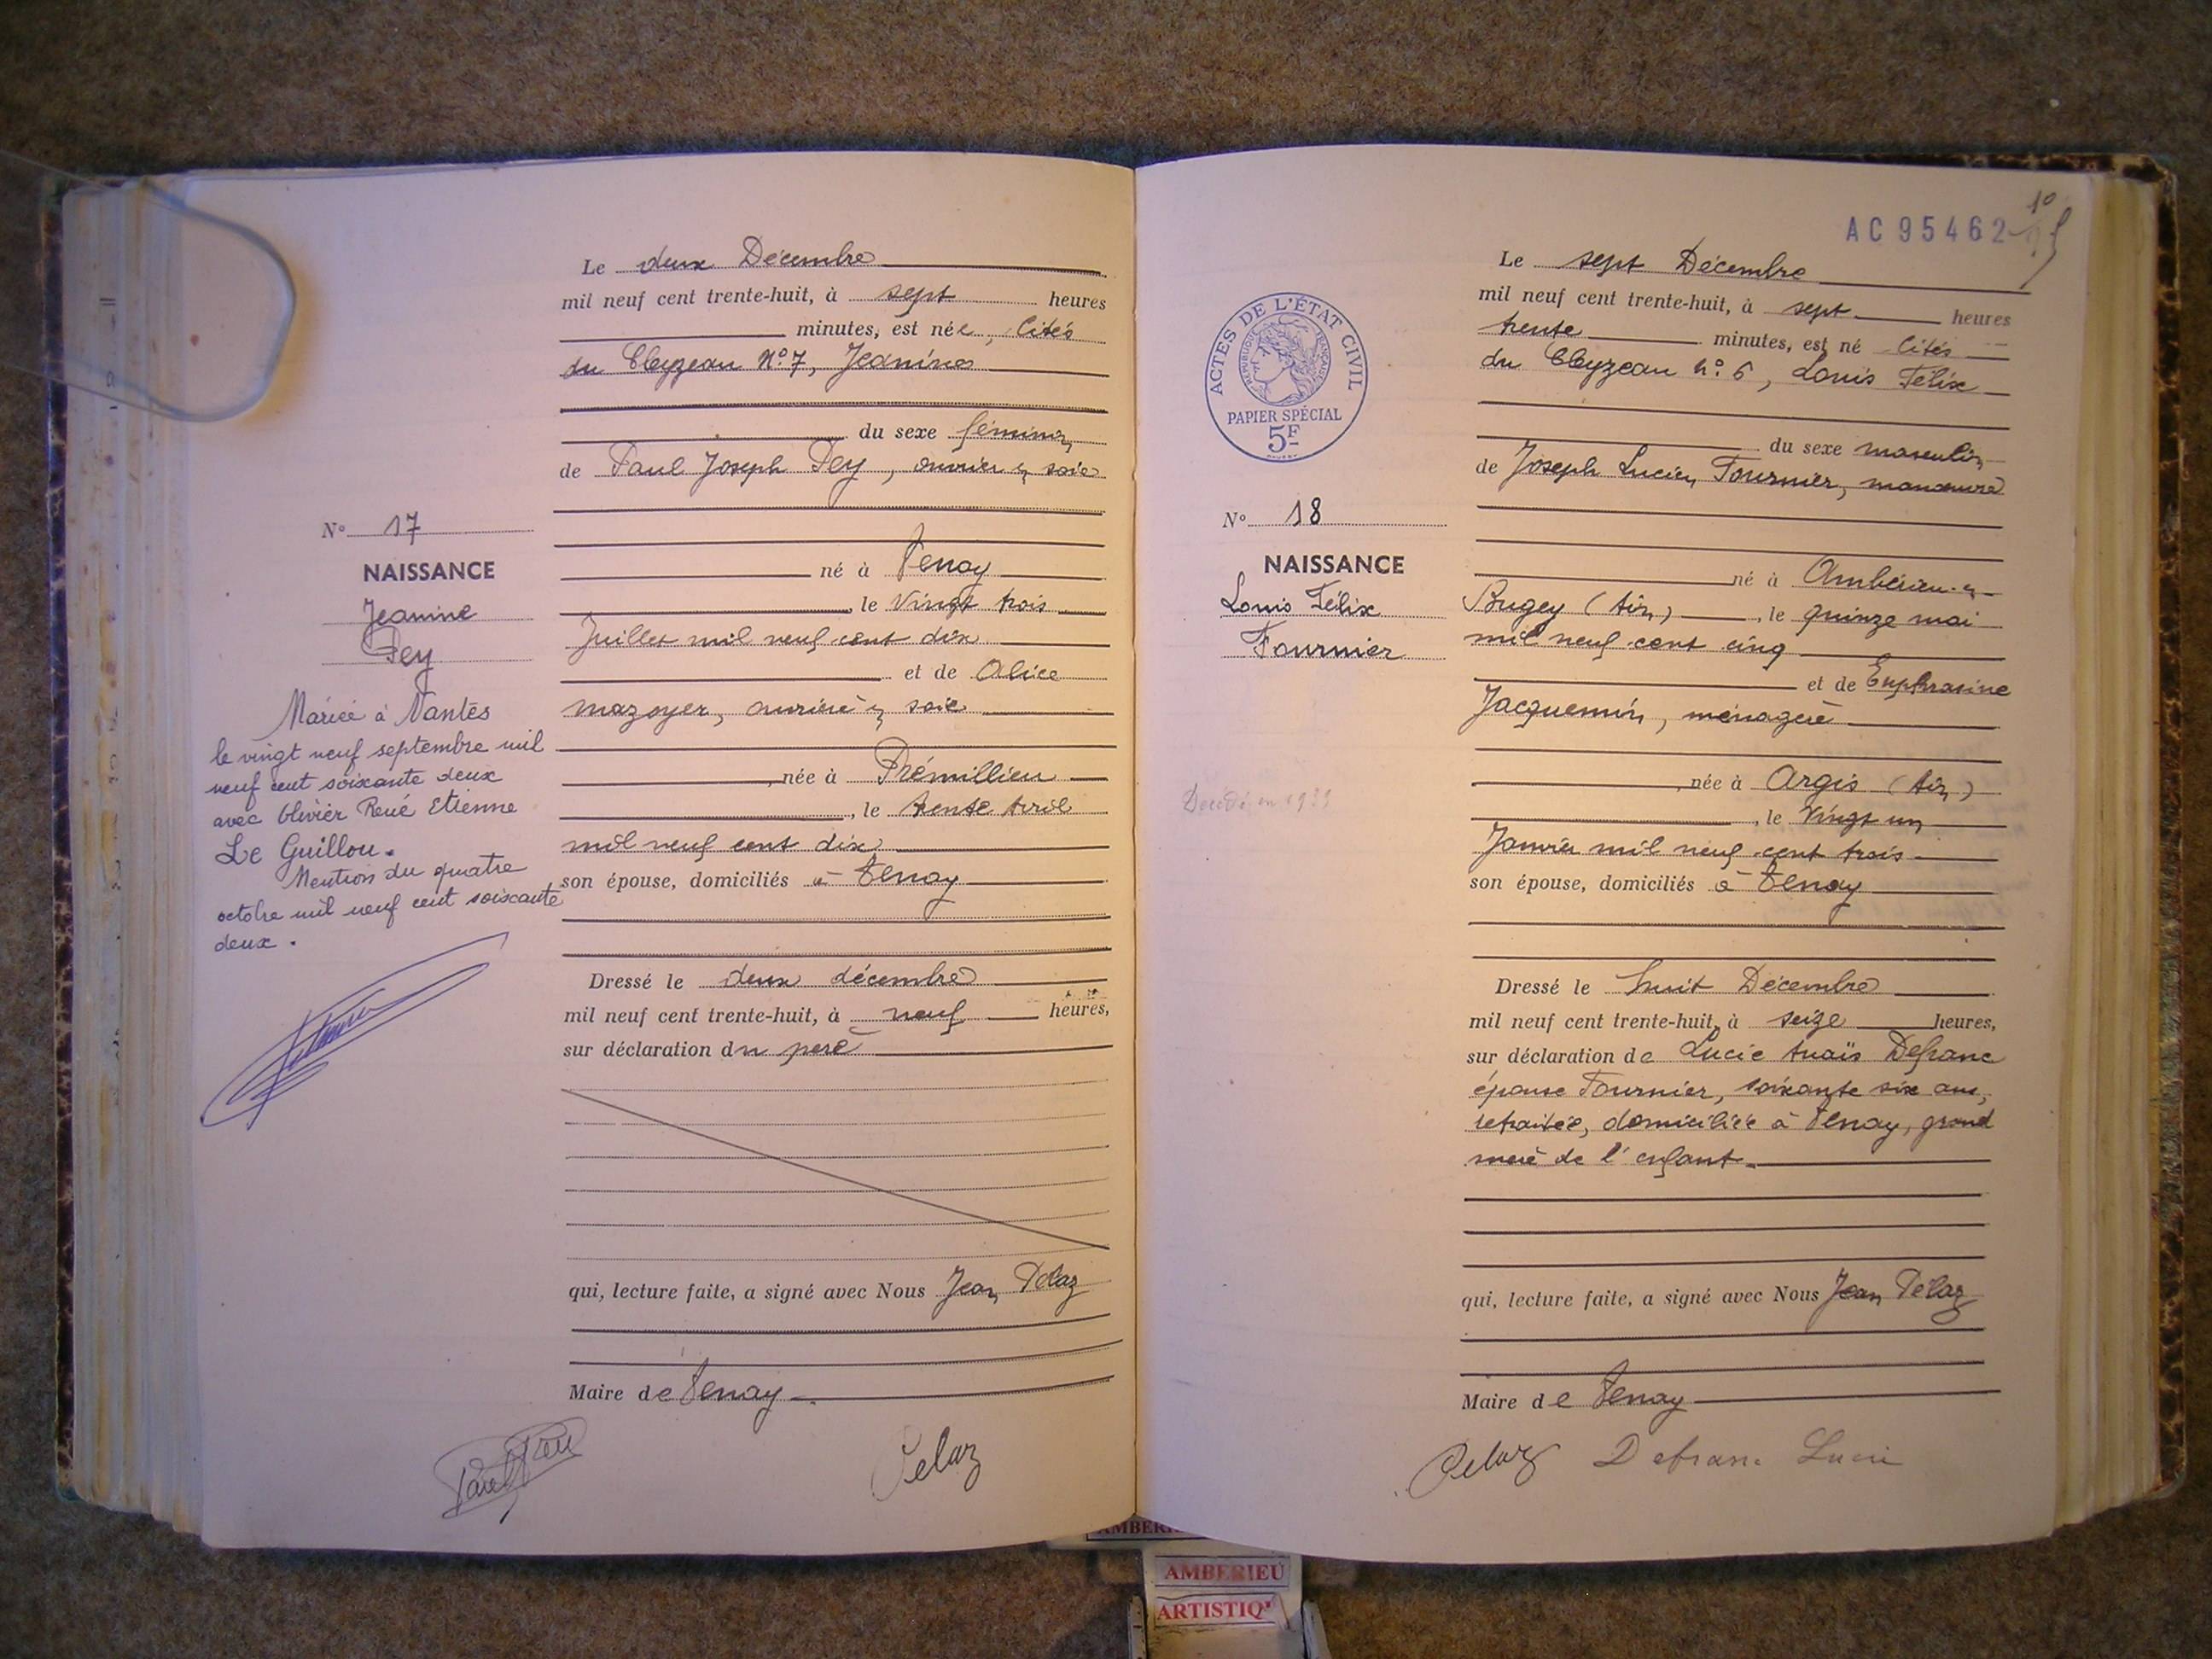 Le deux Décembre
mil neuf cent trente-huit, à sept heures
minutes, est née, Cités
du Cleyzeau N° 7, Jeanine
du sexe féminin
de Paul Joseph Pey, ouvrier en soie
N° 17
NAISSANCE
Jeanine
Pey
né à Tenay
, le Vingt trois
Juillet mil neuf cent dix
et de Alice
Mazoyer, ouvrière en soie
, née à Prémillieu
, le trente Avril
mil neuf cent dix
son épouse, domiciliés à Tenay
Mariée à Nantes
le vingt neuf septembre mil
neuf cent soixante deux
avec Olivier René Etienne
Le Guillou.
Mention du quatre
octobre mil neuf cent soixante
deux.
Dressé le deux décembre
mil neuf cent trente-huit, à neuf heures,
sur déclaration du père
qui, lecture faite, a signé avec Nous Jean Pélaz
Maire de Tenay
Pelaz
AC 95462
10
Le sept Décembre
mil neuf cent trente-huit, à sept heures
trente minutes, est né Cités
du Cleyzeau n° 6, Louis Félix
ACTES DE L'ÉTAT CIVIL
RÉPUBLIQUE FRANÇAISE
PAPIER SPÉCIAL
5F
du sexe masculin
de Joseph Lucien Fournier, manœuvre
N° 18
NAISSANCE
Louis Félix
Fournier
né à Ambérieu-en-
Bugey (Ain), le quinze mai
mil neuf cent cinq
et de Euphrasine
Jacquemin, ménagère
, née à Argis (Ain)
, le Vingt un
Janvier mil neuf cent trois
son épouse, domiciliés à Tenay
Dressé le huit Décembre
mil neuf cent trente-huit, à seize heures,
sur déclaration de Lucie Anaïs Defranc
épouse Fournier, soixante six ans,
retraitée, domiciliée à Tenay, grand
mère de l'enfant.
qui, lecture faite, a signé avec Nous Jean Pélaz
Maire de Tenay
Pelaz Defranc Lucie
AMBERIEU
ARTISTIQ